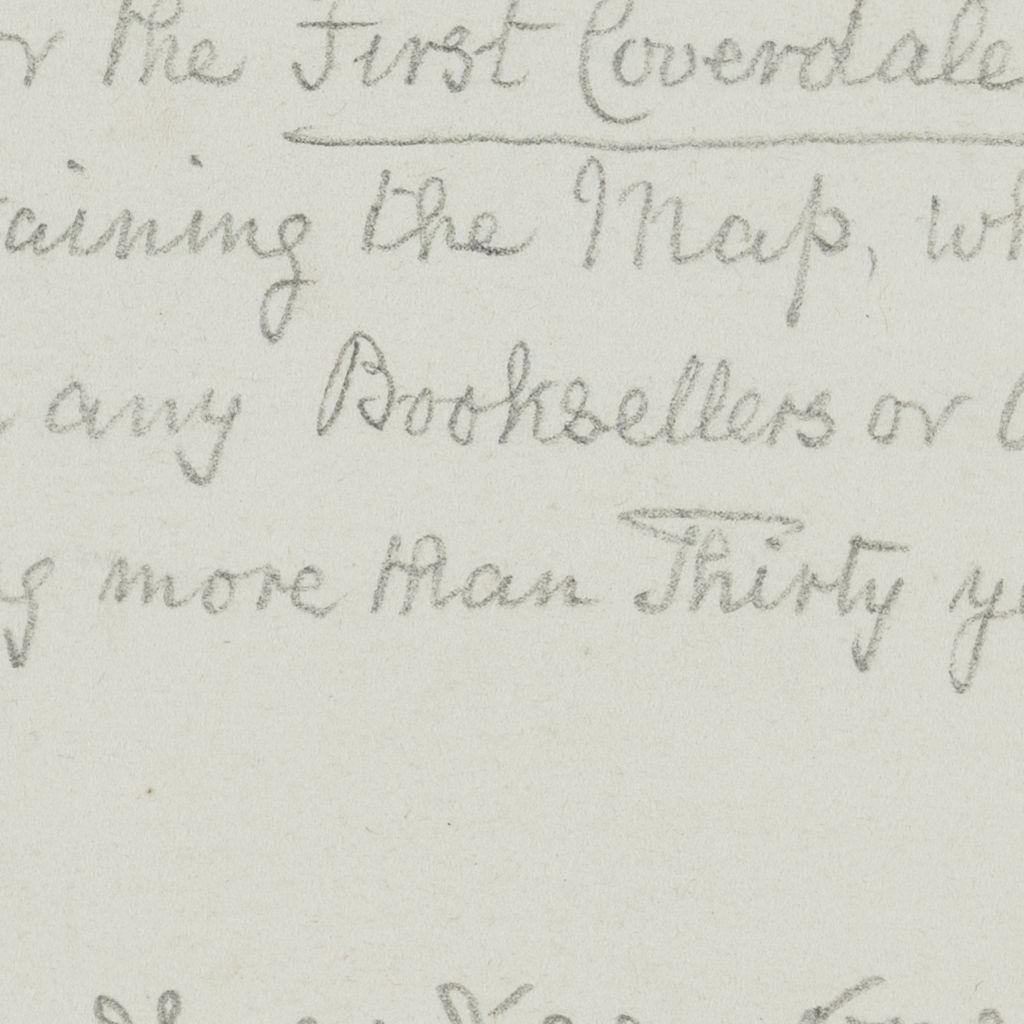 the First Coverdale
taining the Map, wh
any Booksellers or
more than Thirty ye